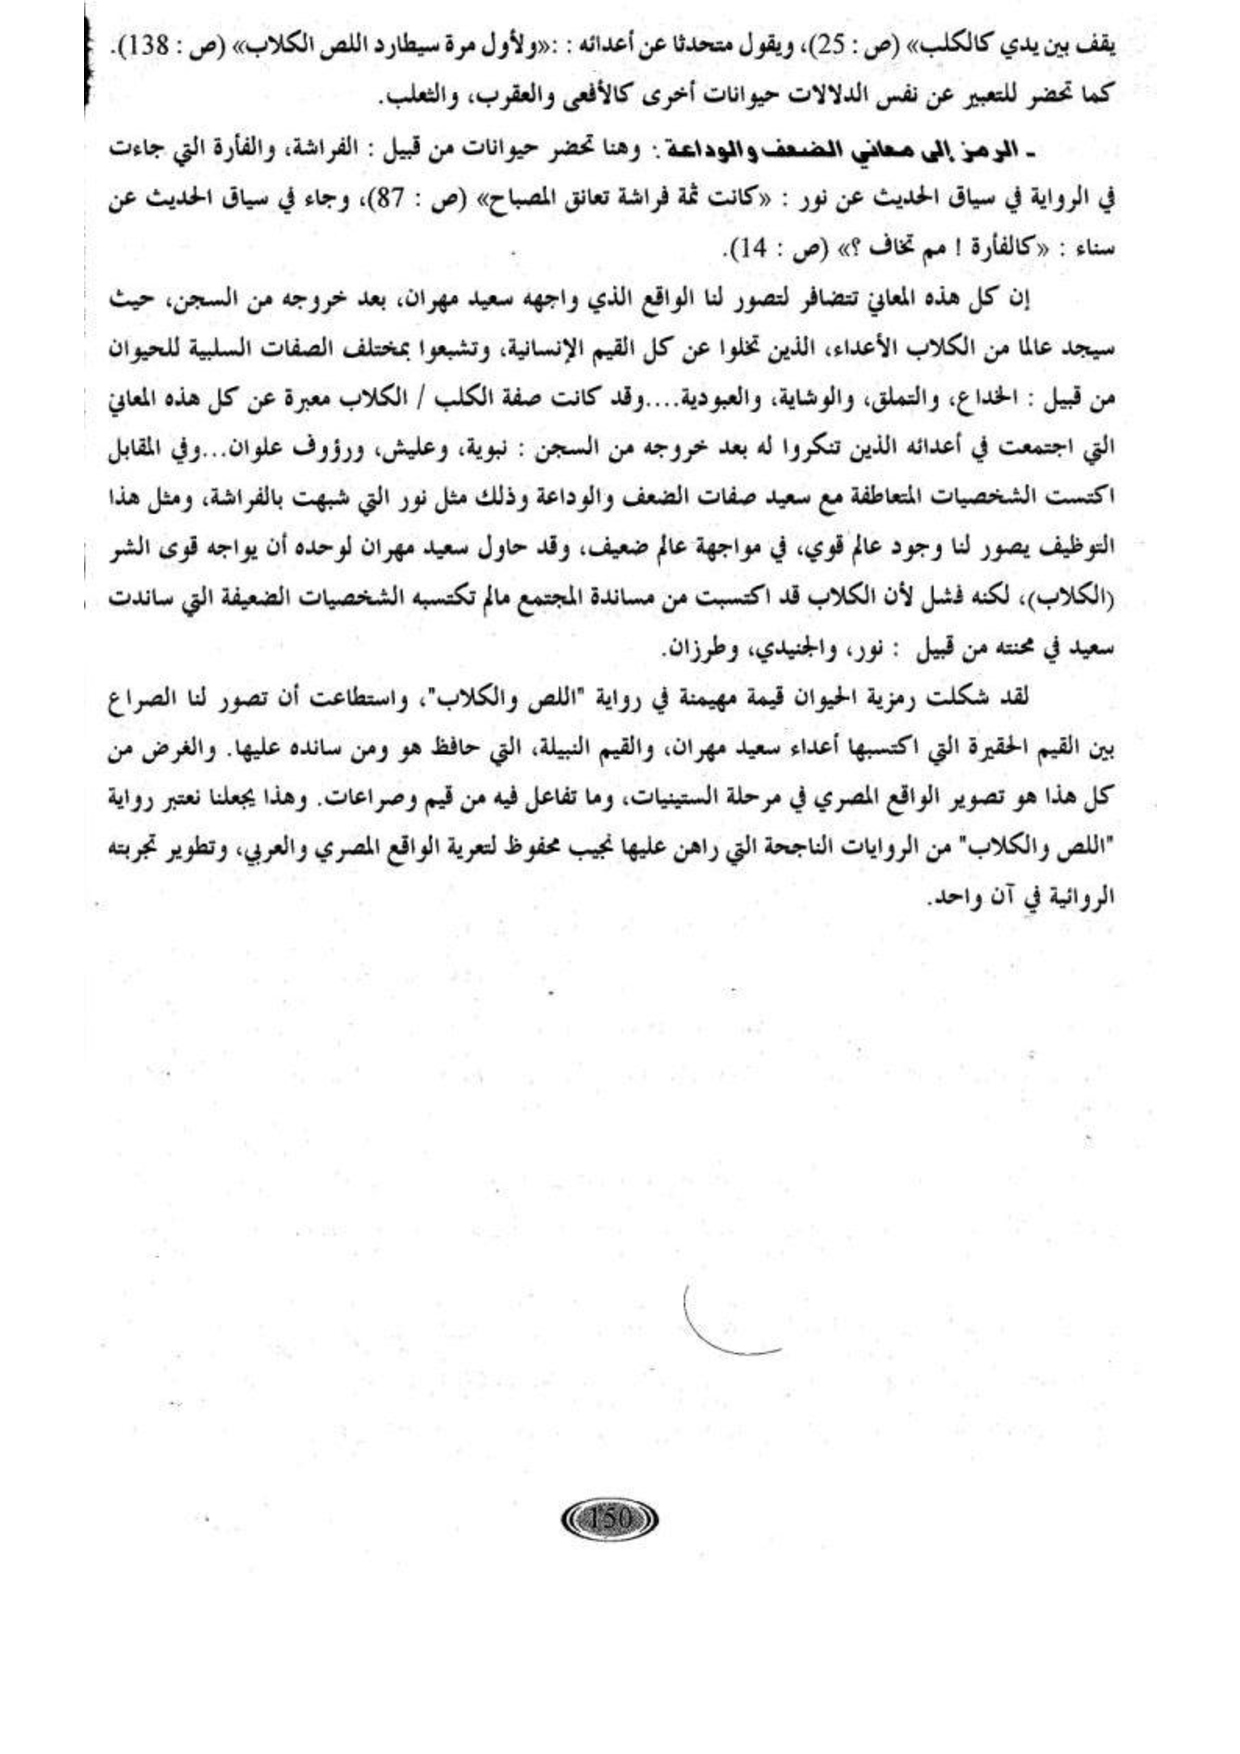 يقف بين يدي كالكلب» (ص : 25)، ويقول متحدثا عن أعدائه : :«ولأول مرة سيطارد اللص الكلاب» (ص : 138).
كما تحضر للتعبير عن نفس الدلالات حيوانات أخرى كالأفعى والعقرب، والثعلب.
ـ الرمز إلى معاني الضعف والوداعة : وهنا تحضر حيوانات من قبيل : الفراشة، والفأرة التي جاءت
في الرواية في سياق الحديث عن نور : «كانت ثمة فراشة تعانق المصباح» (ص : 87)، وجاء في سياق الحديث عن
سناء : «كالفأرة ! مم تخاف ؟» (ص : 14).
إن كل هذه المعاني تتضافر لتصور لنا الواقع الذي واجهه سعيد مهران، بعد خروجه من السجن، حيث
سيجد عالما من الكلاب الأعداء، الذين تخلوا عن كل القيم الإنسانية، وتشبعوا بمختلف الصفات السلبية للحيوان
من قبيل : الخداع، والتملق، والوشاية، والعبودية....وقد كانت صفة الكلب / الكلاب معبرة عن كل هذه المعاني
التي اجتمعت في أعدائه الذين تنكروا له بعد خروجه من السجن : نبوية، وعليش، ورؤوف علوان...وفي المقابل
اكتست الشخصيات المتعاطفة مع سعيد صفات الضعف والوداعة وذلك مثل نور التي شبهت بالفراشة، ومثل هذا
التوظيف يصور لنا وجود عالم قوي، في مواجهة عالم ضعيف، وقد حاول سعيد مهران لوحده أن يواجه قوى الشر
(الكلاب)، لكنه فشل لأن الكلاب قد اكتسبت من مساندة المجتمع مالم تكتسبه الشخصيات الضعيفة التي ساندت
سعيد في محنته من قبيل : نور، والجنيدي، وطرزان.
لقد شكلت رمزية الحيوان قيمة مهيمنة في رواية "اللص والكلاب"، واستطاعت أن تصور لنا الصراع
بين القيم الحقيرة التي اكتسبها أعداء سعيد مهران، والقيم النبيلة، التي حافظ هو ومن سانده عليها. والغرض من
كل هذا هو تصوير الواقع المصري في مرحلة الستينيات، وما تفاعل فيه من قيم وصراعات. وهذا يجعلنا نعتبر رواية
"اللص والكلاب" من الروايات الناجحة التي راهن عليها نجيب محفوظ لتعرية الواقع المصري والعربي، وتطوير تجربته
الروائية في آن واحد.
150